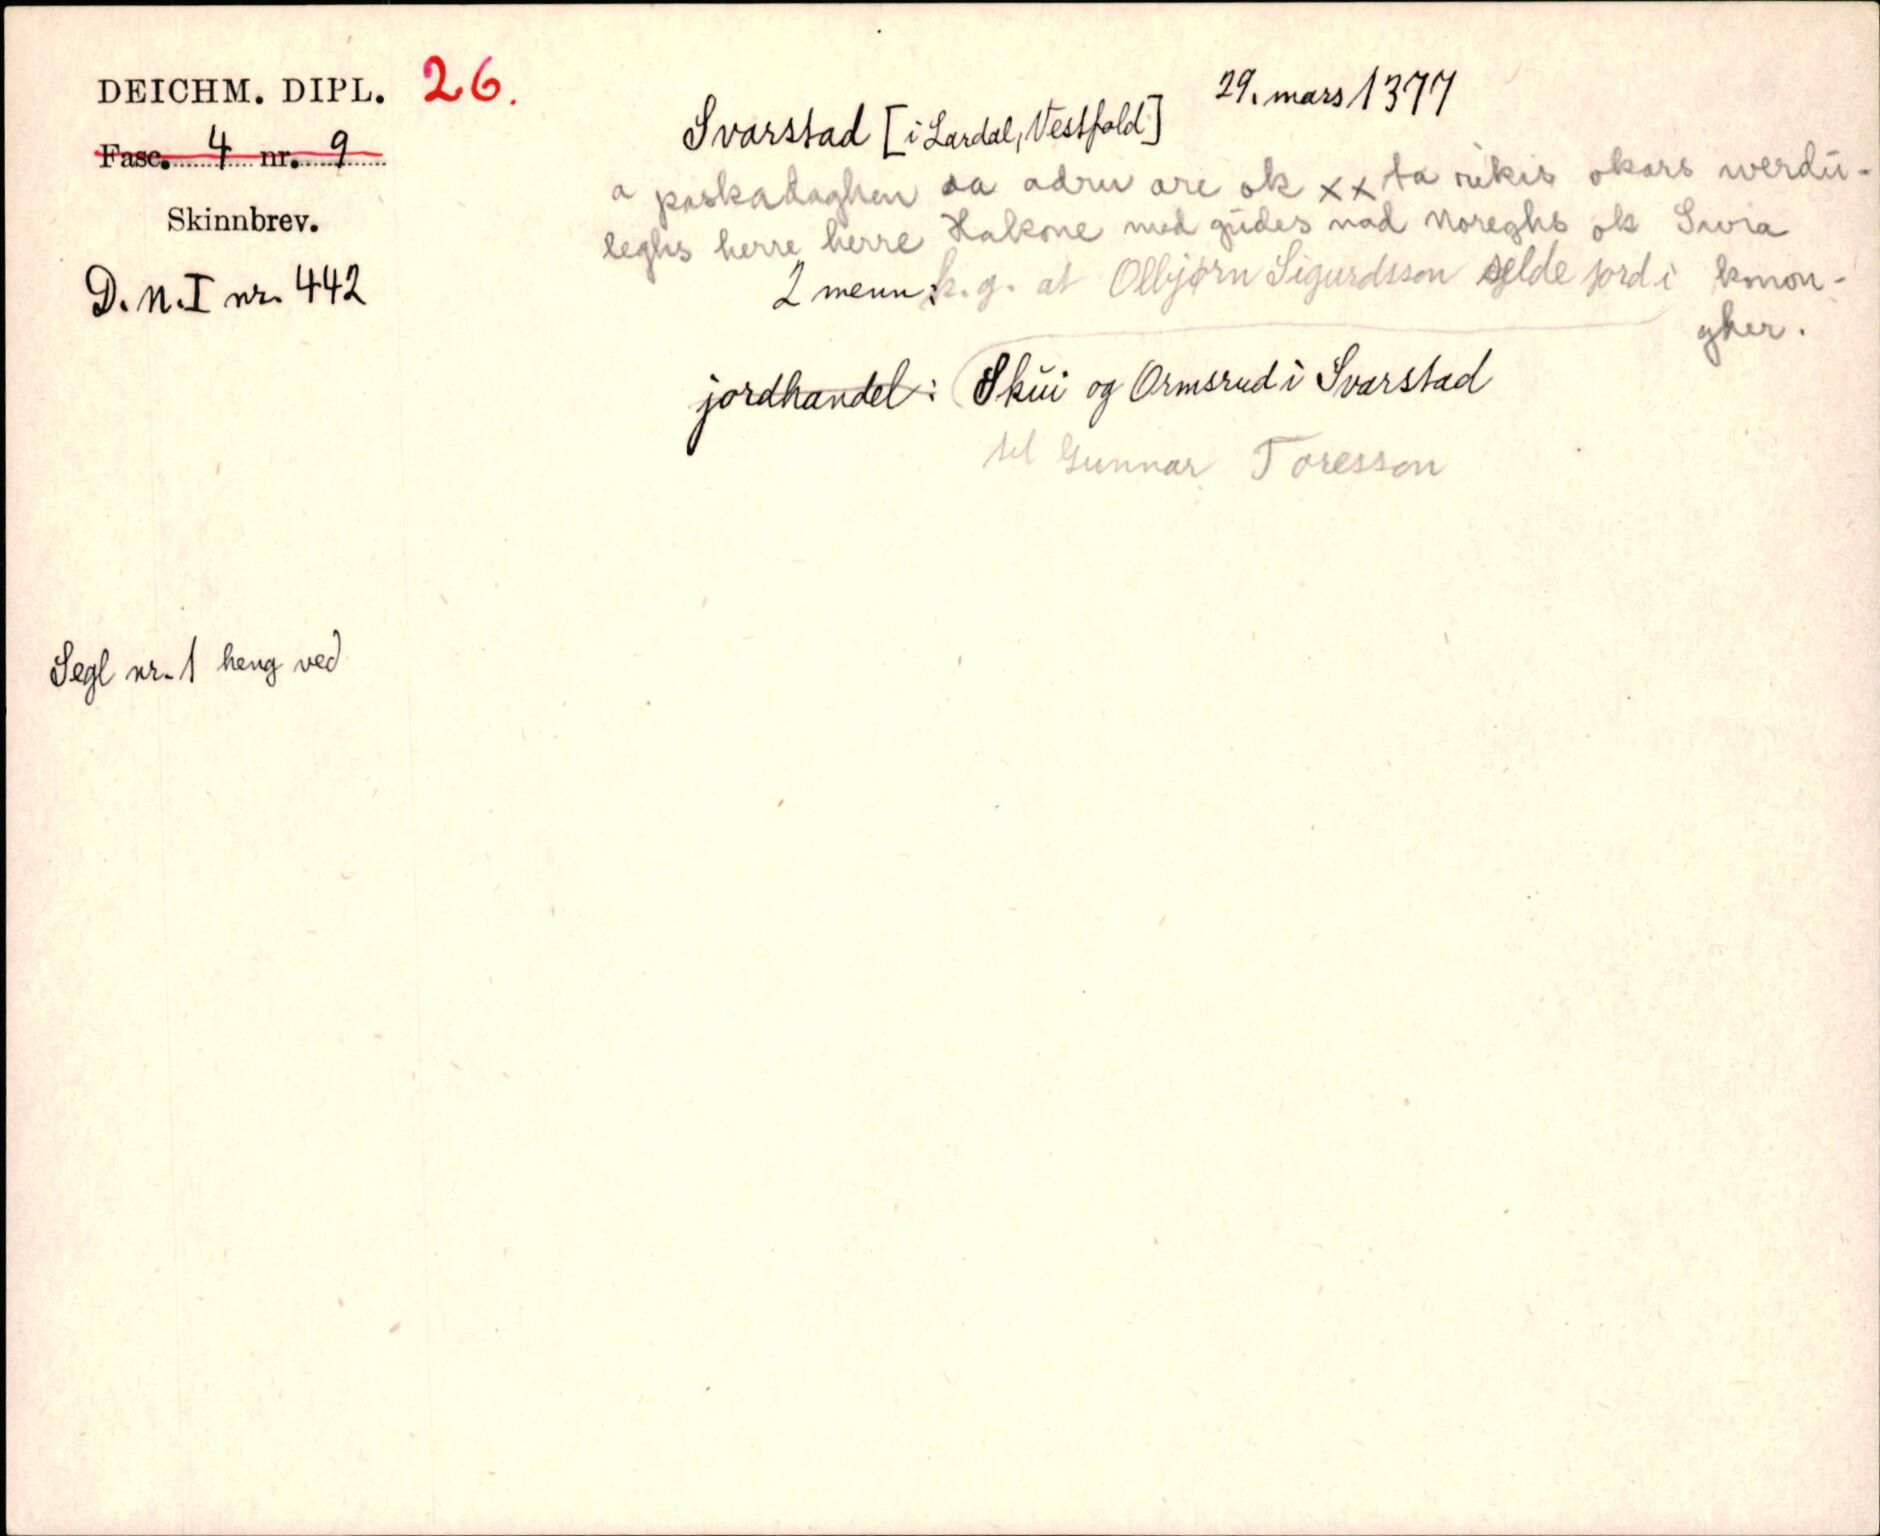 DEICHM. DIPL. 26.
Fasc. 4 nr. 9
Skinnbrev.
D.N.I nr. 442
Segl nr. 1 heng ved
29. mars 1377
Svarstad [i Lardal, Vestfold]
a paskadaghen a adru are ok xx ta rikis okars werdu-
leghs herre herre Hakone med gudes nad Noreghs ok Swia
konon-
gher.
2 menn: k.g. at Olbjørn Sigurdsson selde jord i
jordhandel: Skui og Ormsrud i Svarstad
til Gunnar Toresson